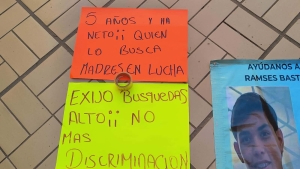 5 AÑOS Y HA
NETO¡¡ QUIEN
LO BUSCA
MADRES EN LUCHA
EXIJO BUSQUEDAS
ALTO¡¡ NO
MAS
DISCRIMINACION
AYÚDANOS A
RAMSES BAST